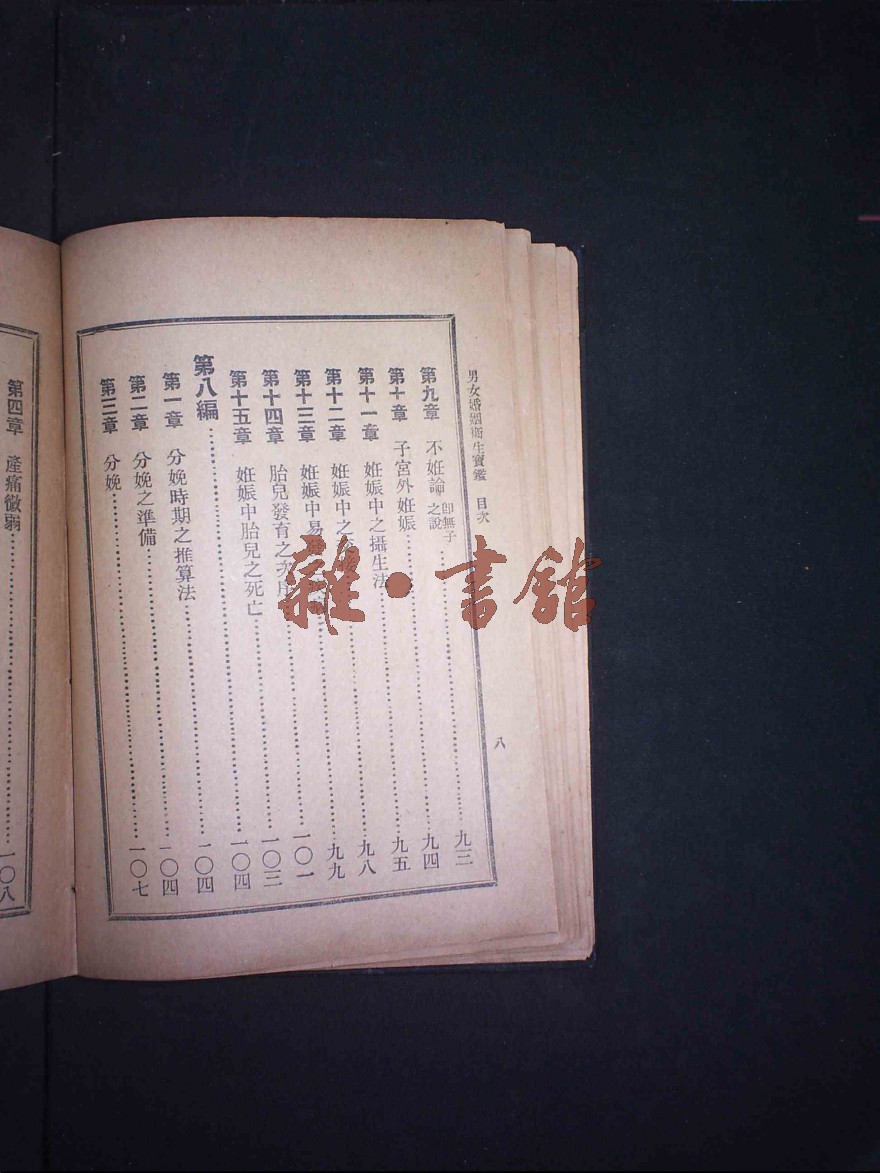 男女婚姻衛生寶鑑 目次 八
第九章 不妊論 即無子之說……九三
第十章 子宮外妊娠……九四
第十一章 妊娠中之攝生法……九五
第十二章 妊娠中之……九八
第十三章 妊娠中易……九九
第十四章 胎兒發育之……一〇一
第十五章 妊娠中胎兒之死亡……一〇三
第八編……一〇四
第一章 分娩時期之推算法……一〇四
第二章 分娩之準備……一〇四
第三章 分娩……一〇七
第四章 產痛微弱……一〇八
雜·書館